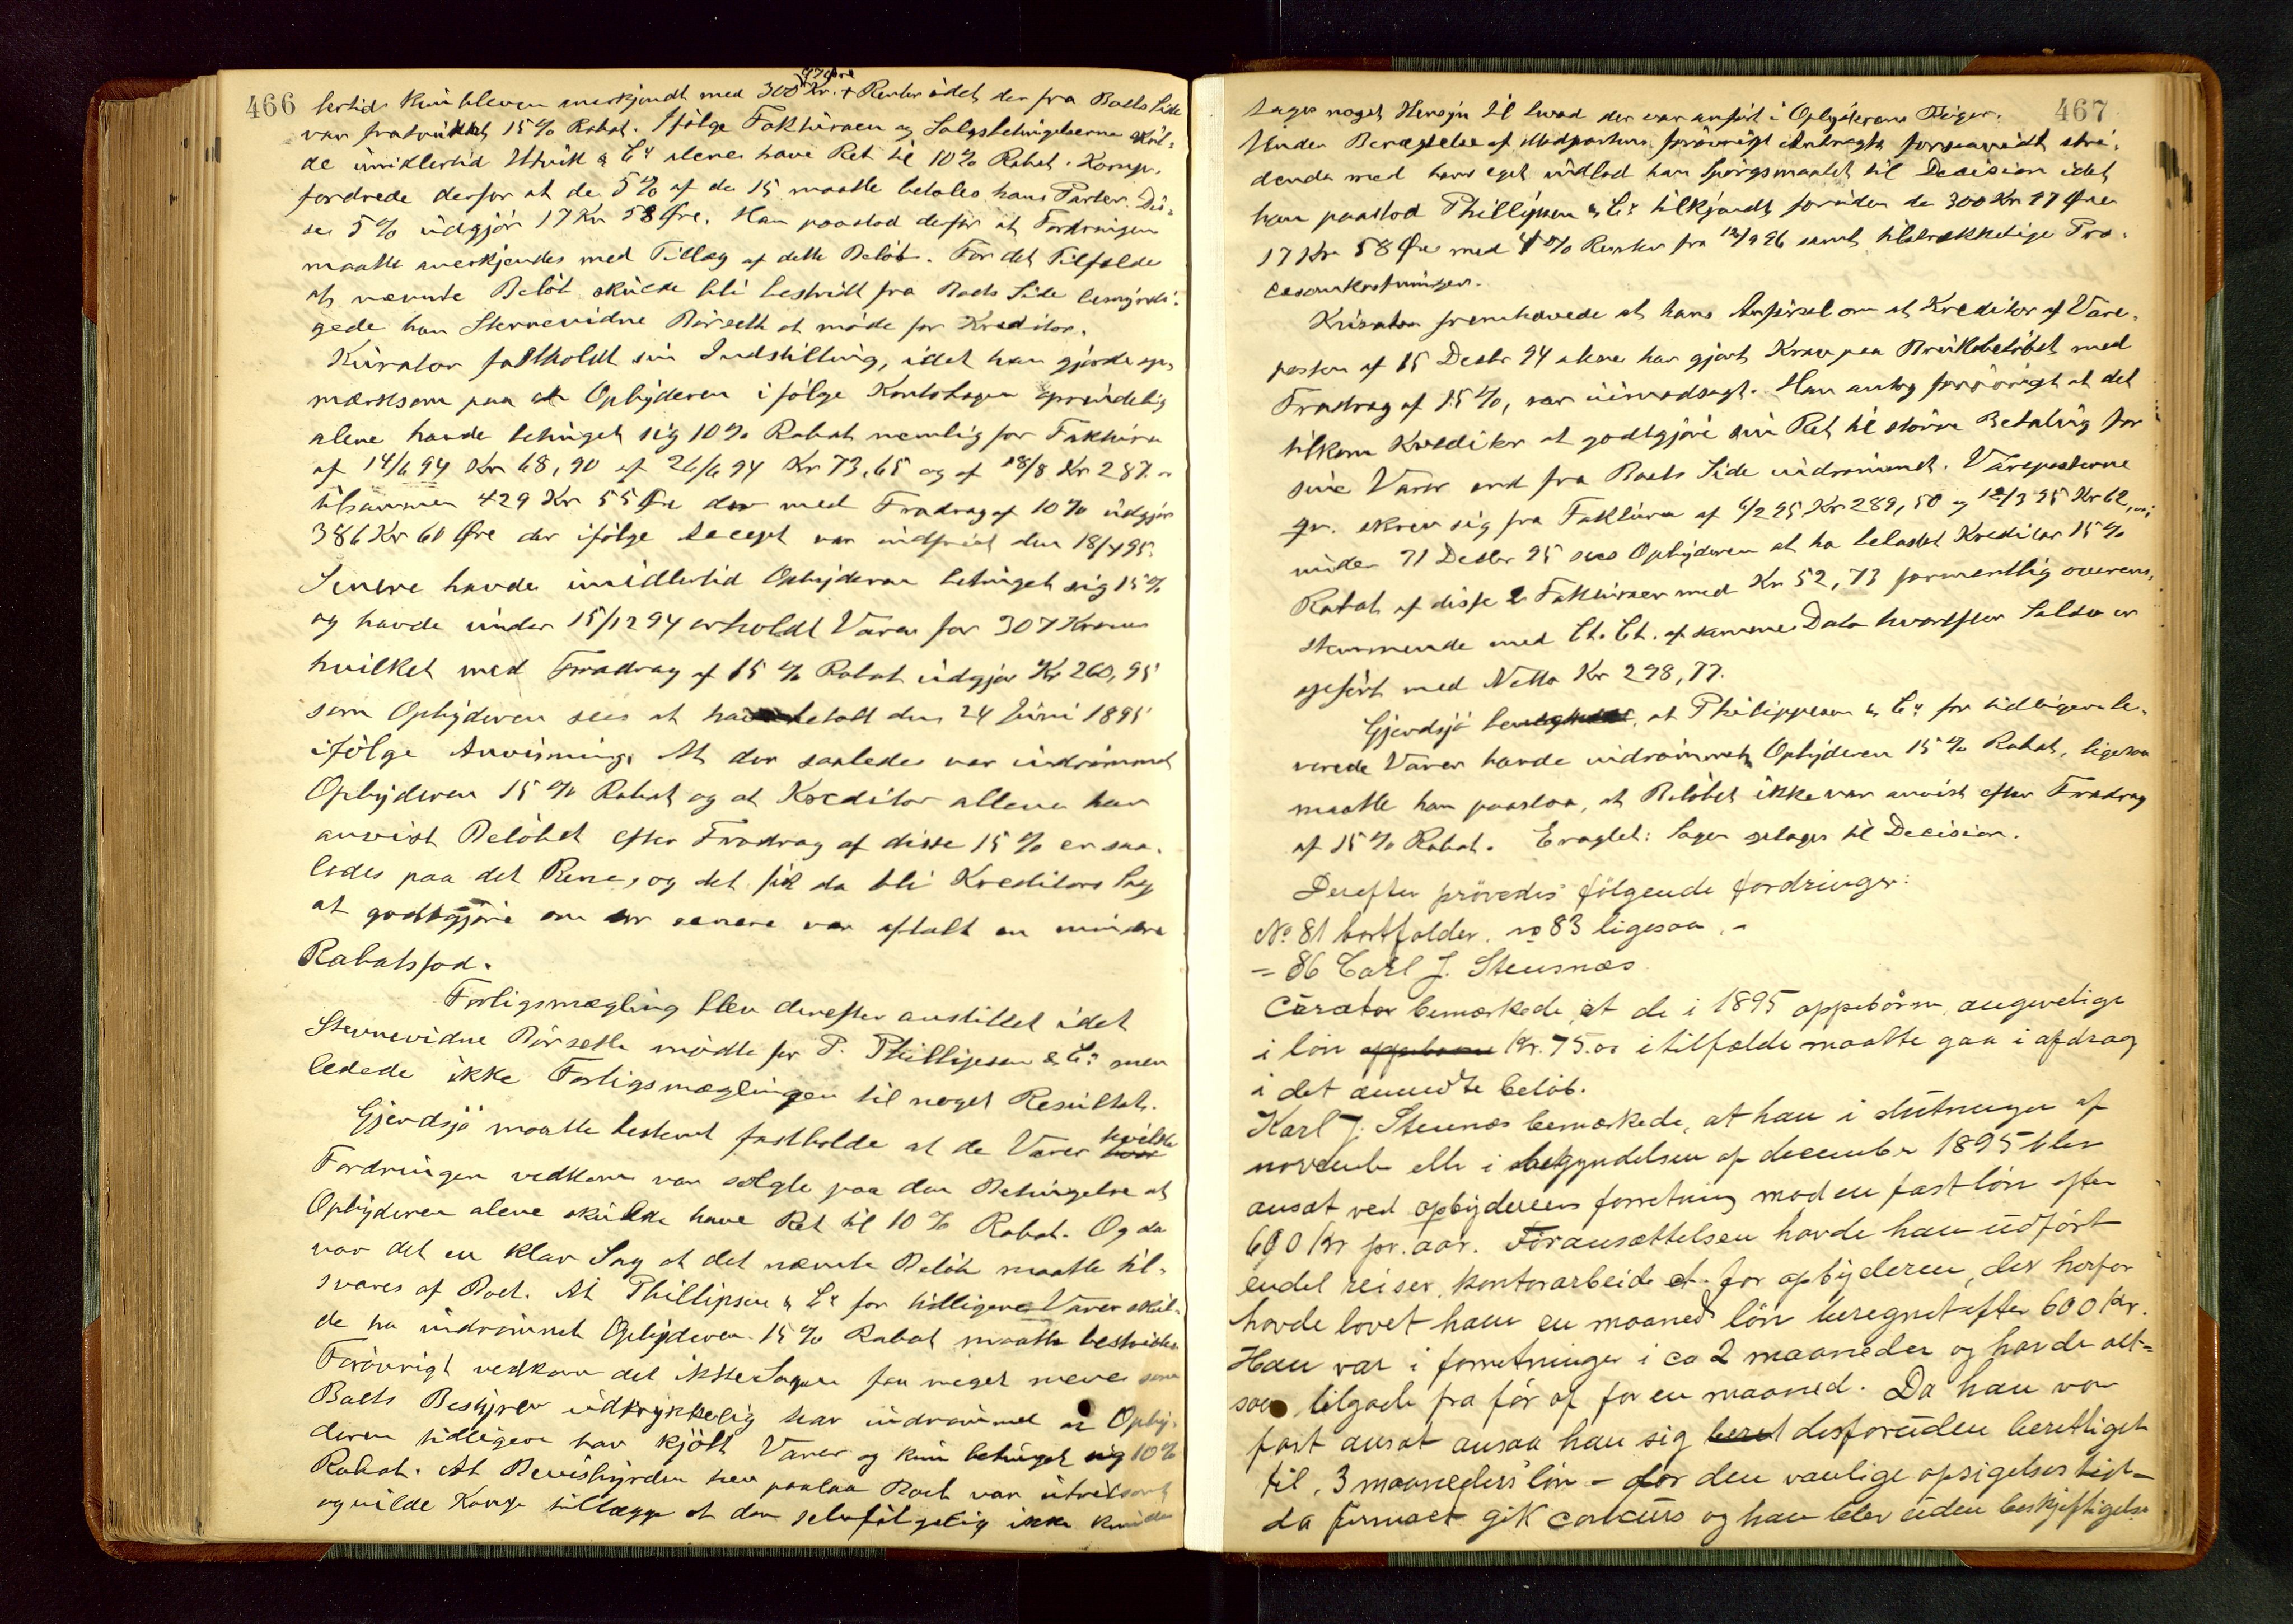 466
97 Øre
lertid kun bleven anerkjendt med 300 Kr. + Renter idet der fra Boets Side
var fratrukket 15 % Rabat. Ifølge Fakturaen og Salgsbetingelserne skul-
de imidlertid Utvik & Co alene have Ret til 10 % Rabat. Komp.
fordrede derfor at de 5 % af de 15 maatte betales hans Parter. Dis-
se 5 % udgjør 17 Kr 58 Øre. Han paastod derfor at Fordringen
maatte anerkjendes med Tillæg af dette Beløb. For det Tilfælde
at nævnte Beløb skulde bli bestridt fra Boets Side bemyndi-
gede han Stevnevidne Børseth at møde for Kreditor.
Kurator fastholdt sin Indstilling, idet han gjorde op-
mærksom paa at Opbyderen ifølge Kontobogen oprindelig
alene havde betinget sig 10 % Rabat nemlig for Faktura
af 14/6 94 Kr 68,90 af 26/6 94 Kr 73,65 og af 18/8 Kr 287.-
tilsammen 429 Kr 55 Øre der med Fradrag af 10 % udgjør
386 Kr 60 Øre der ifølge Accept var indfriet den 18/4 95.
Senere havde imidlertid Opbyderen betinget sig 15 %
og havde under 15/12 94 erholdt Varer for 307 Kroner
hvilket med Fradrag af 15 % Rabat udgjør Kr 260,95
som Opbyderen sees at ha betalt den 24 Juni 1895
ifølge Anvisning. At der saaledes var indrømmet
Opbyderen 15 % Rabat og at Kreditor allene har
anvist Beløbet efter Fradrag af disse 15 % er saa-
ledes paa det Rene, og det fik da bli Kreditors Sag
at godtgjøre om der senere var aftalt en mindre
Rabatsfod.
Forligsmægling blev derefter anstillet idet
Stevnevidne Børseth mødte for P. Phillipsen & Co men
ledede ikke Forligsmæglingen til noget Resultat.
Gjendsjø maatte bestemt fastholde at de Varer hvilke
Fordringen vedkom var solgte paa den Betingelse at
Opbyderen alene skulde have Ret til 10 % Rabat. Og da
var det en klar Sag at det nævnte Beløb maatte til-
svares af Boet. At Phillipsen & Co for tidligere Varer skul-
de ha indrømmet Opbyderen 15 % Rabat maatte bestrides.
Forøvrigt vedkom det ikke Sagen saa meget mere som
Boets Bestyrer udtrykkelig har indrømmet at Opby-
deren tidligere har kjøbt Varer og kun betinget sig 10 %
Rabat. At Bevisbyrden her paalaa Boet var utvilsomt
og vilde Komp. tillægge at der selvfølgelig ikke kunde
467
tages noget Hensyn til hvad der var anført i Opbyderens Bøger.
Under Benægtelse af Modpartens forøvrigt Anbragte forsaavidt stri-
dende med hans eget indlod han Spørgsmaalet til Decision idet
han paastod Phillipsen & Co tilkjendt foruden de 300 Kr 97 Øre
17 Kr 58 Øre med 4 % Renter fra 12/9 96 samt tilstrækkelige Pro-
cesomkostninger.
Kurator fremhævede at hans Anførsel om at Kreditor af Vare-
posten af 15 Decbr 94 alene har gjort Krav paa Bruttobeløbet med
Fradrag af 15 %, var uimodsagt. Han antog forøvrigt at det
tilkom Kreditor at godtgjøre sin Ret til større Betaling for
sine Varer end fra Boets Side indrømmet. Vareposterne
skrev sig fra Faktura af 6/2 95 Kr 289,50 og 12/3 95 Kr 62,
under 31 Decbr 95 sees Opbyderen at ha belastet Kreditor 15 %
Rabat af disse 2 Fakturaer med Kr 52,73 formentlig overens-
stemmende med Ct. Ct. af samme Dato hvorefter Saldo er
opført med Netto Kr 298,77.
Gjendsjø benegtede, at Philippsen & Co for tidligere le-
verede Varer havde indrømmet Opbyderen 15 % Rabat, ligesaa
maatte han paastaa, at Beløbet ikke var anvist efter Fradrag
af 15 % Rabat. Eragtet: Sagen optages til Decision.
Derefter prøvedes følgende fordringer:
No 81 bortfalder. no 83 ligesaa. -
- 86 Carl J. Stensnæs
Curator bemærkede, at de i 1895 oppebårne, angivelige
i løn oppebaarne Kr. 75.00 i tilfælde maatte gaa i afdrag
i det anmeldte beløb.
Karl J. Stensnæs bemærkede, at han i slutningen af
november eller i begyndelsen af december 1895 blev
ansat ved opbyderens forretning mod en fast løn efter
600 Kr pr. aar. Før ansættelsen havde han udført
endel reiser, kontorarbeide et. for opbyderen, der herfor
havde lovet ham en maaned løn beregnet efter 600 Kr.
Han var i forretningen i ca 2 maaneder og havde alt-
saa tilgode fra før af for en maaned. Da han var
fast ansat ansaa han sig beret desforuden berettiget
til 3 maaneders løn - for den vanlige opsigelses tid -
da firmaet gik concurs og han blev uden beskjeftigelse